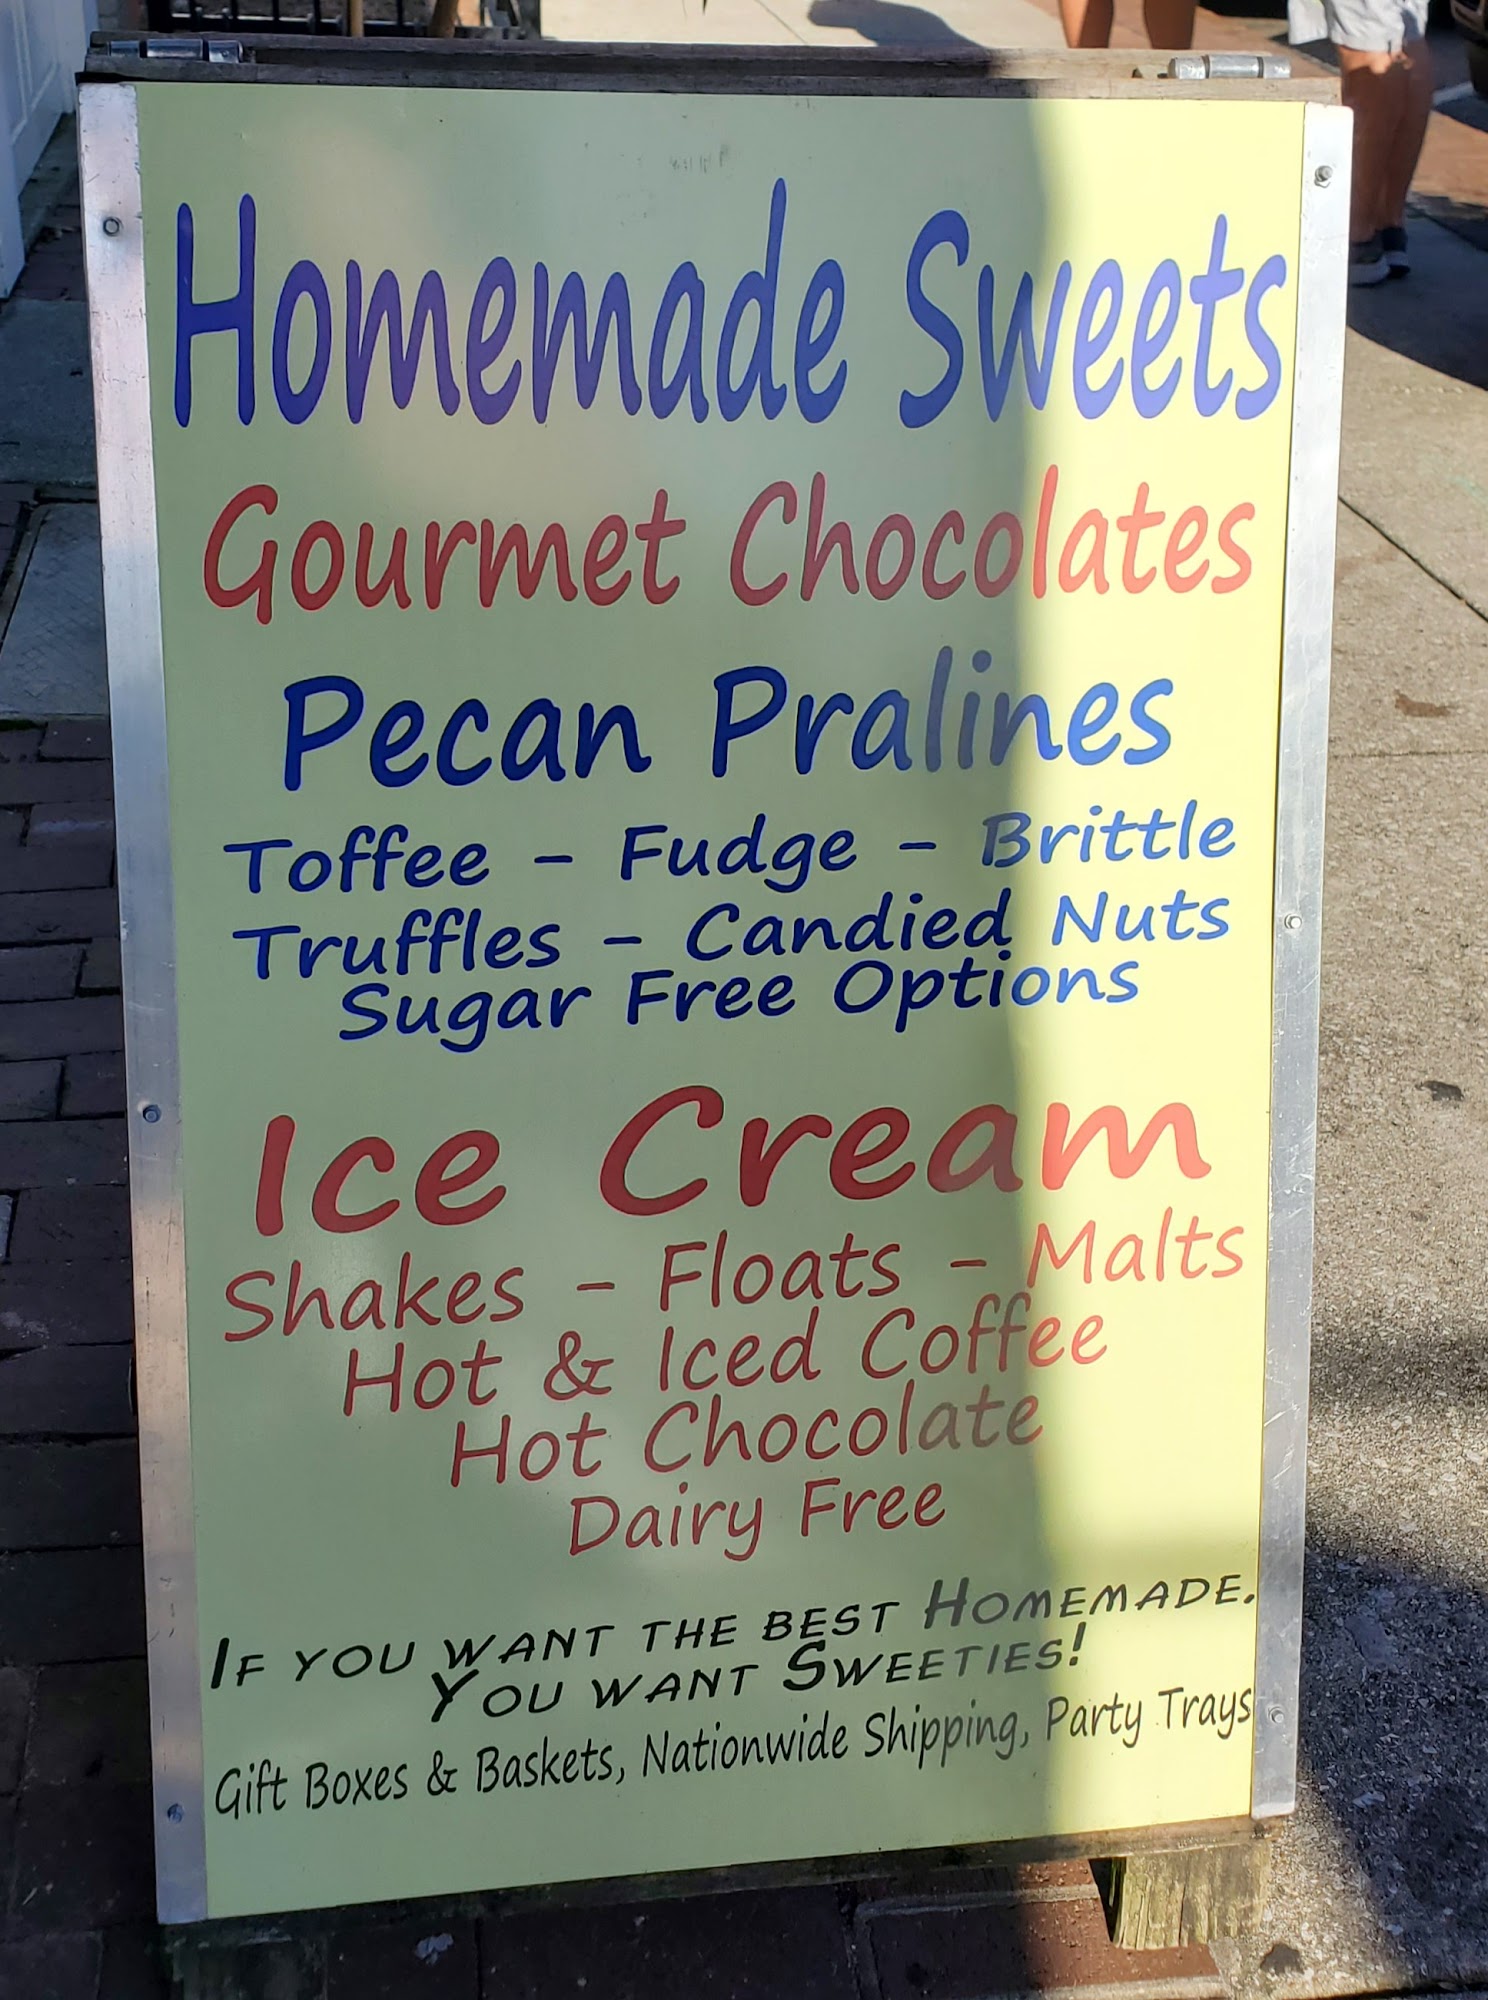 Homemade Sweets
Gourmet Chocolates
Pecan Pralines
Toffee - Fudge - Brittle
Truffles - Candied Nuts
Sugar Free Options
Ice Cream
Shakes - Floats - Malts
Hot & Iced Coffee
Hot Chocolate
Dairy Free
IF YOU WANT THE BEST HOMEMADE.
YOU WANT SWEETIES!
Gift Boxes & Baskets, Nationwide Shipping, Party Trays